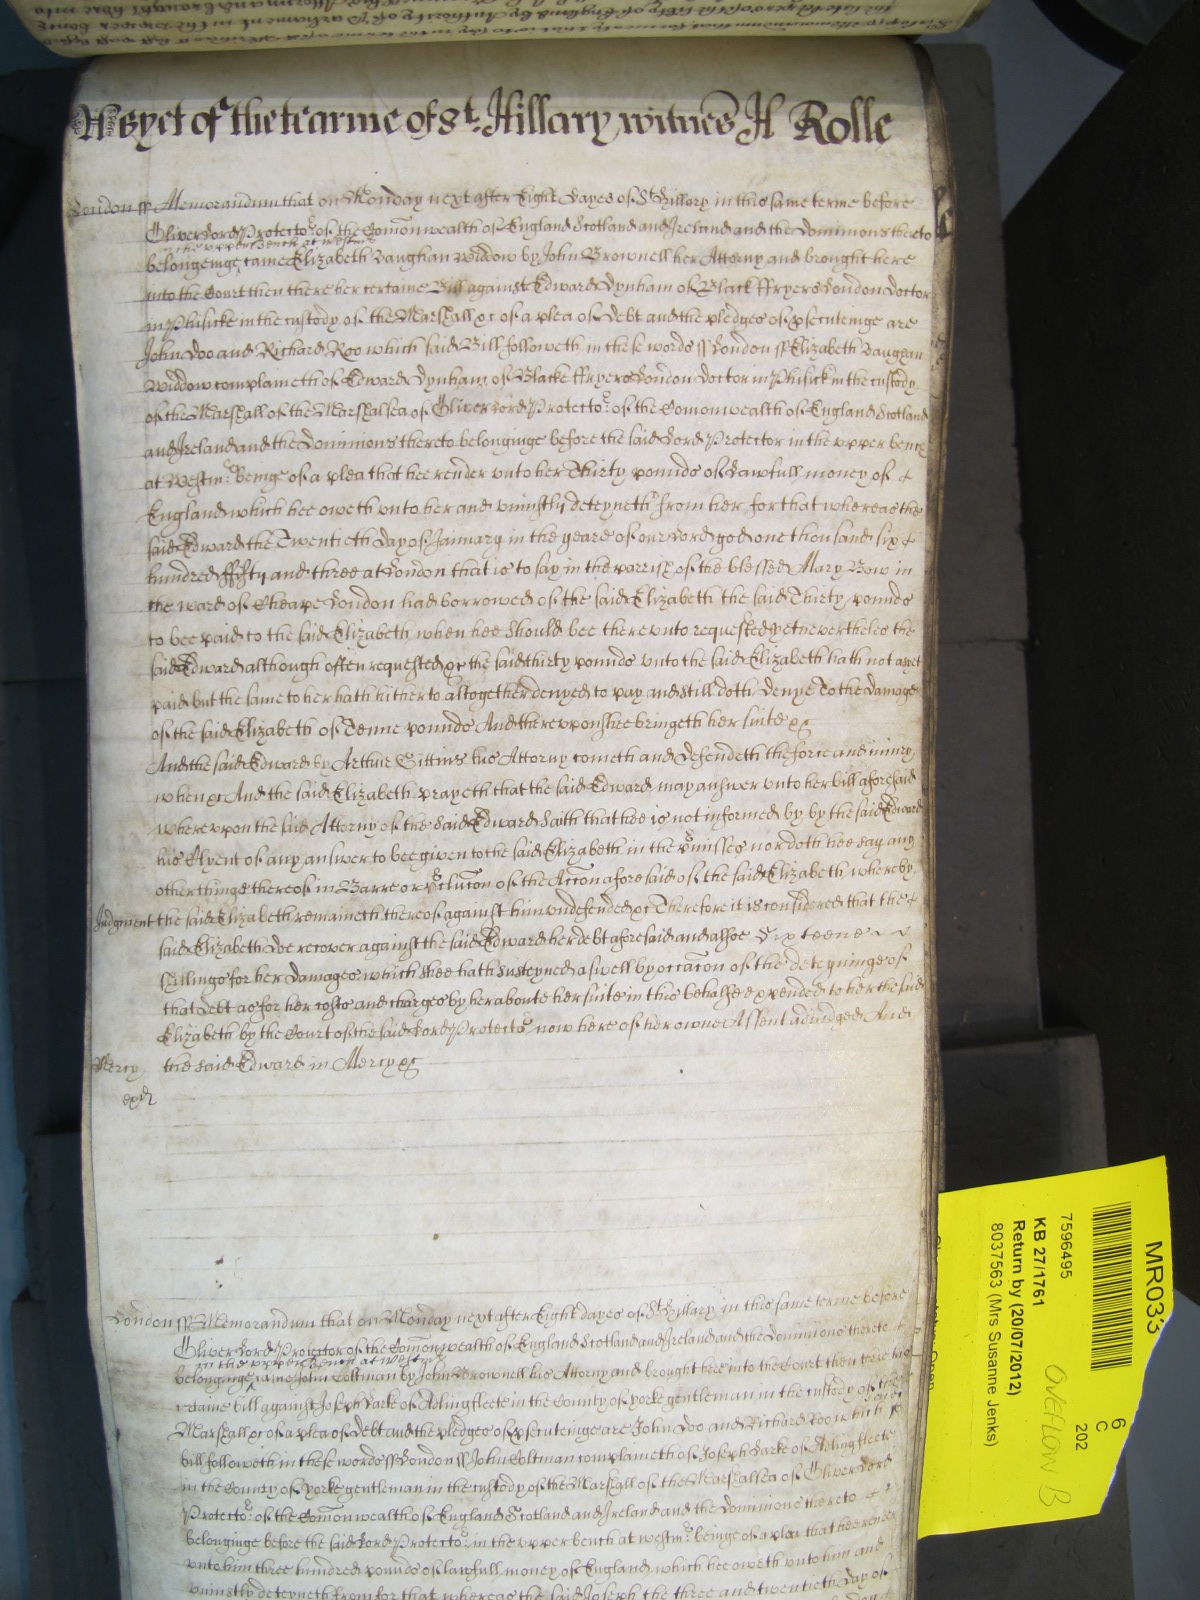 As yet of the tearme of St. Hillary witnes H Rolle
London ss Memorandum that on Monday next after Eight dayes of St Hillary in this same terme before
Oliver Lord Protector of the Comonwealth of England Scotland and Ireland and the Dominions thereto
in the upper bench at Westmr
belonginge came Elizabeth Vaughan Widdow by John Brownell her Attorny and brought here
into the Court then there her certaine Bill against Edward Dynham of Black ffryers London Doctor
in Phisicke in the custody of the Marshall &c of a plea of Debt and the pledges of psecuteinge are
John Doo and Richard Roo which said Bill followeth in these words ss London ss Elizabeth Vaughan
Widdow complaineth of Edward Dynham of Blacke ffryers London Doctor in Phisick in the custody
of the Marshall of the Marshalsea of Oliver Lord Protector of the Comonwealth of England Scotland
and Ireland and the Dominions thereto belonginge before the said Lord Protector in the upper bench
at Westmr. beinge of a plea that hee render unto her Thirty pounds of Lawfull money of
England which hee oweth unto her and uniustly deteyneth from her for that whereas the
said Edward the Twentieth day of January in the yeare of our Lord god one thousand six
hundred ffifty and three at London that is to say in the parrish of the blessed Mary Bow in
the ward of Cheape London had borrowed of the said Elizabeth the said Thirty pounds
to bee paid to the said Elizabeth when hee should bee thereunto requested yet nevertheles the
said Edward although often requested &c the said thirty pounds unto the said Elizabeth hath not as yet
paid but the same to her hath hitherto altogether denyed to pay and still doth denye To the damage
of the said Elizabeth of Tenne pounds And thereupon shee bringeth her suite &c
And the said Edward by Arthur Gittins his Attorny cometh and defendeth the force and iniury
when &c And the said Elizabeth prayeth that the said Edward may answer unto her bill aforesaid
whereupon the said Attorny of the said Edward saith that hee is not informed by by the said Edward
his Clyent of any answer to bee given to the said Elizabeth in the pmisses nor doth hee say any
other thinge thereof in Barre or pclucon of the Accon aforesaid of the said Elizabeth whereby
Judgment the said Elizabeth remaineth thereof against him undefended &c Therefore it is considered that the
said Elizabeth doe recover against the said Edward her debt aforesaid and alsoe Sixteene
shillings for her damages which shee hath susteyned aswell by occacon of the deteyninge of
that debt as for her costs and charges by her aboute her suite in this behalfe expended to her the said
Elizabeth by the Court of the said Lord Protector now here of her owne Assent adiudged And
Mercy the said Edward in Mercy &c
London ss Memorandum that on Monday next after Eight dayes of St Hillary in this same terme before
Oliver Lord Protector of the Comonwealth of England Scotland and Ireland and the Dominions thereto
in the upper bench at Westmr
belonginge came John Coltman by John Brownell his Attorny and brought here into the Court then there his
certaine bill against Joseph Larke of Adlingfleete in the County of yorke gentleman in the custody of the
Marshall &c of a plea of Debt and the pledges of psecuteinge are John Doo and Richard Roo which said
bill followeth in these words ss London ss John Coltman complaineth of Joseph Larke of Adlingfleete
in the County of yorke gentleman in the custody of the Marshall of the Marshalsea of Oliver Lord
Protector of the Comonwealth of England Scotland and Ireland and the Dominions thereto
belonginge before the said Lord Protector in the upper bench at westmr. beinge of a plea that hee render
unto him three hundred pounds of lawfull money of England which hee oweth unto him and
uniustly deteyneth from for that whereas the said Joseph the three and twentieth day of
MR033
7596495
KB 27/1761
Return by (20/07/2012)
8037563 (Mrs Susanne Jenks)
6
C
202
OVEFLOW B